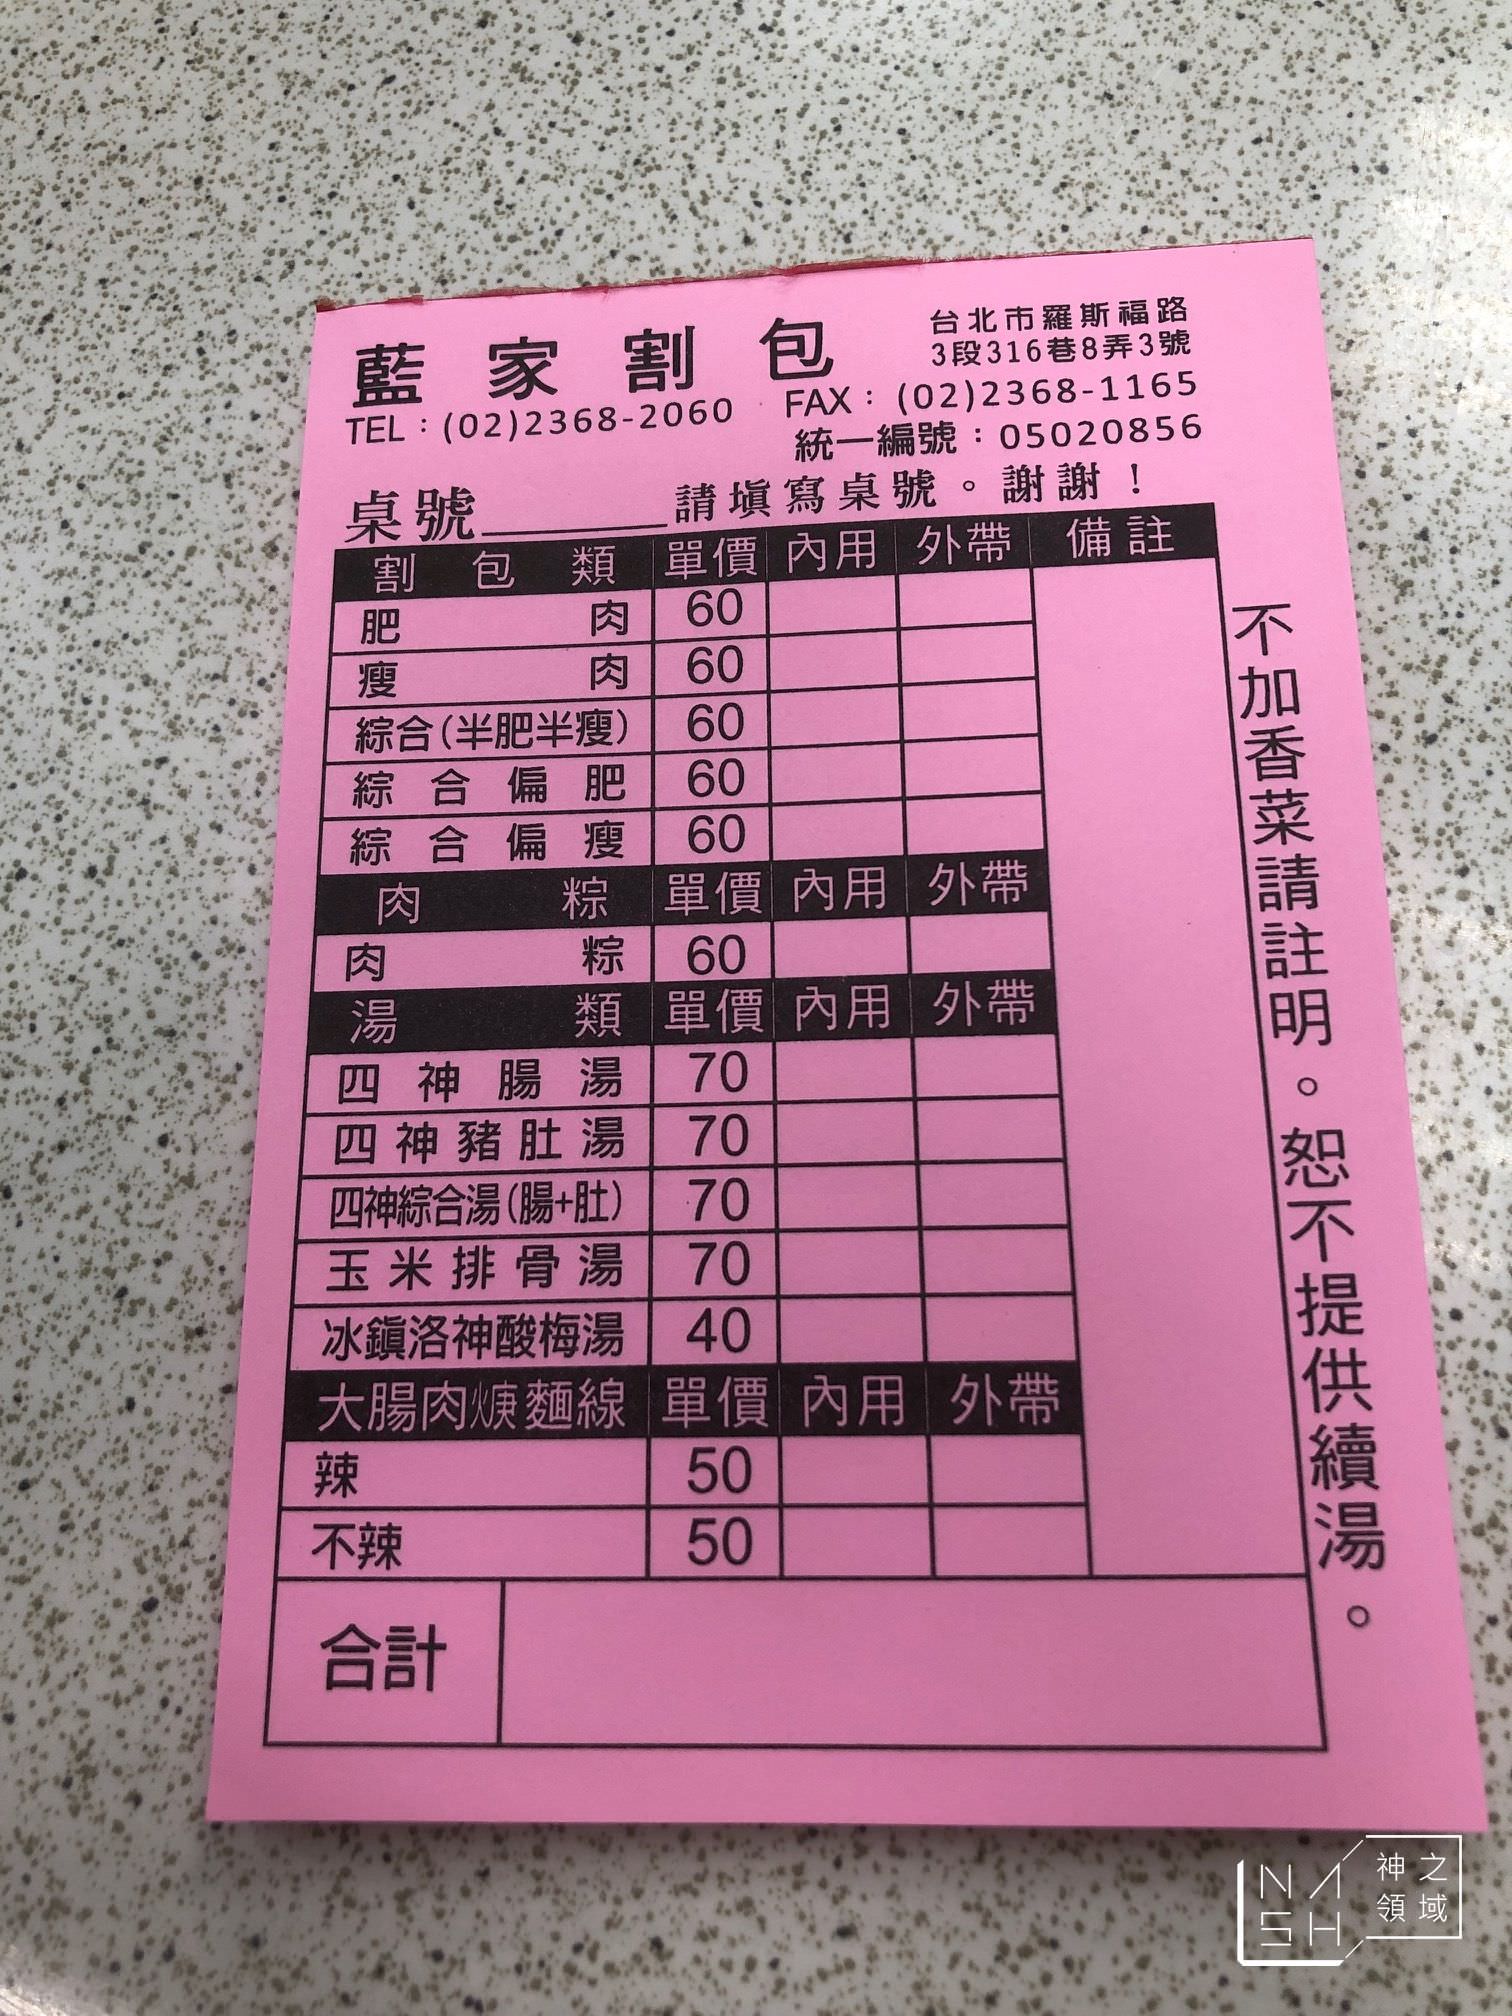 藍家割包
台北市羅斯福路
3段316巷8弄3號
TEL：(02)2368-2060
FAX：(02)2368-1165
統一編號：05020856
桌號______請填寫桌號。謝謝！
割包類 單價 內用 外帶 備註
肥肉 60
瘦肉 60
綜合(半肥半瘦) 60
綜合偏肥 60
綜合偏瘦 60
肉粽 單價 內用 外帶
肉粽 60
湯類 單價 內用 外帶
四神腸湯 70
四神豬肚湯 70
四神綜合湯(腸+肚) 70
玉米排骨湯 70
冰鎮洛神酸梅湯 40
大腸肉焿麵線 單價 內用 外帶
辣 50
不辣 50
合計
不加香菜請註明。恕不提供續湯。
NASH
神之
領域